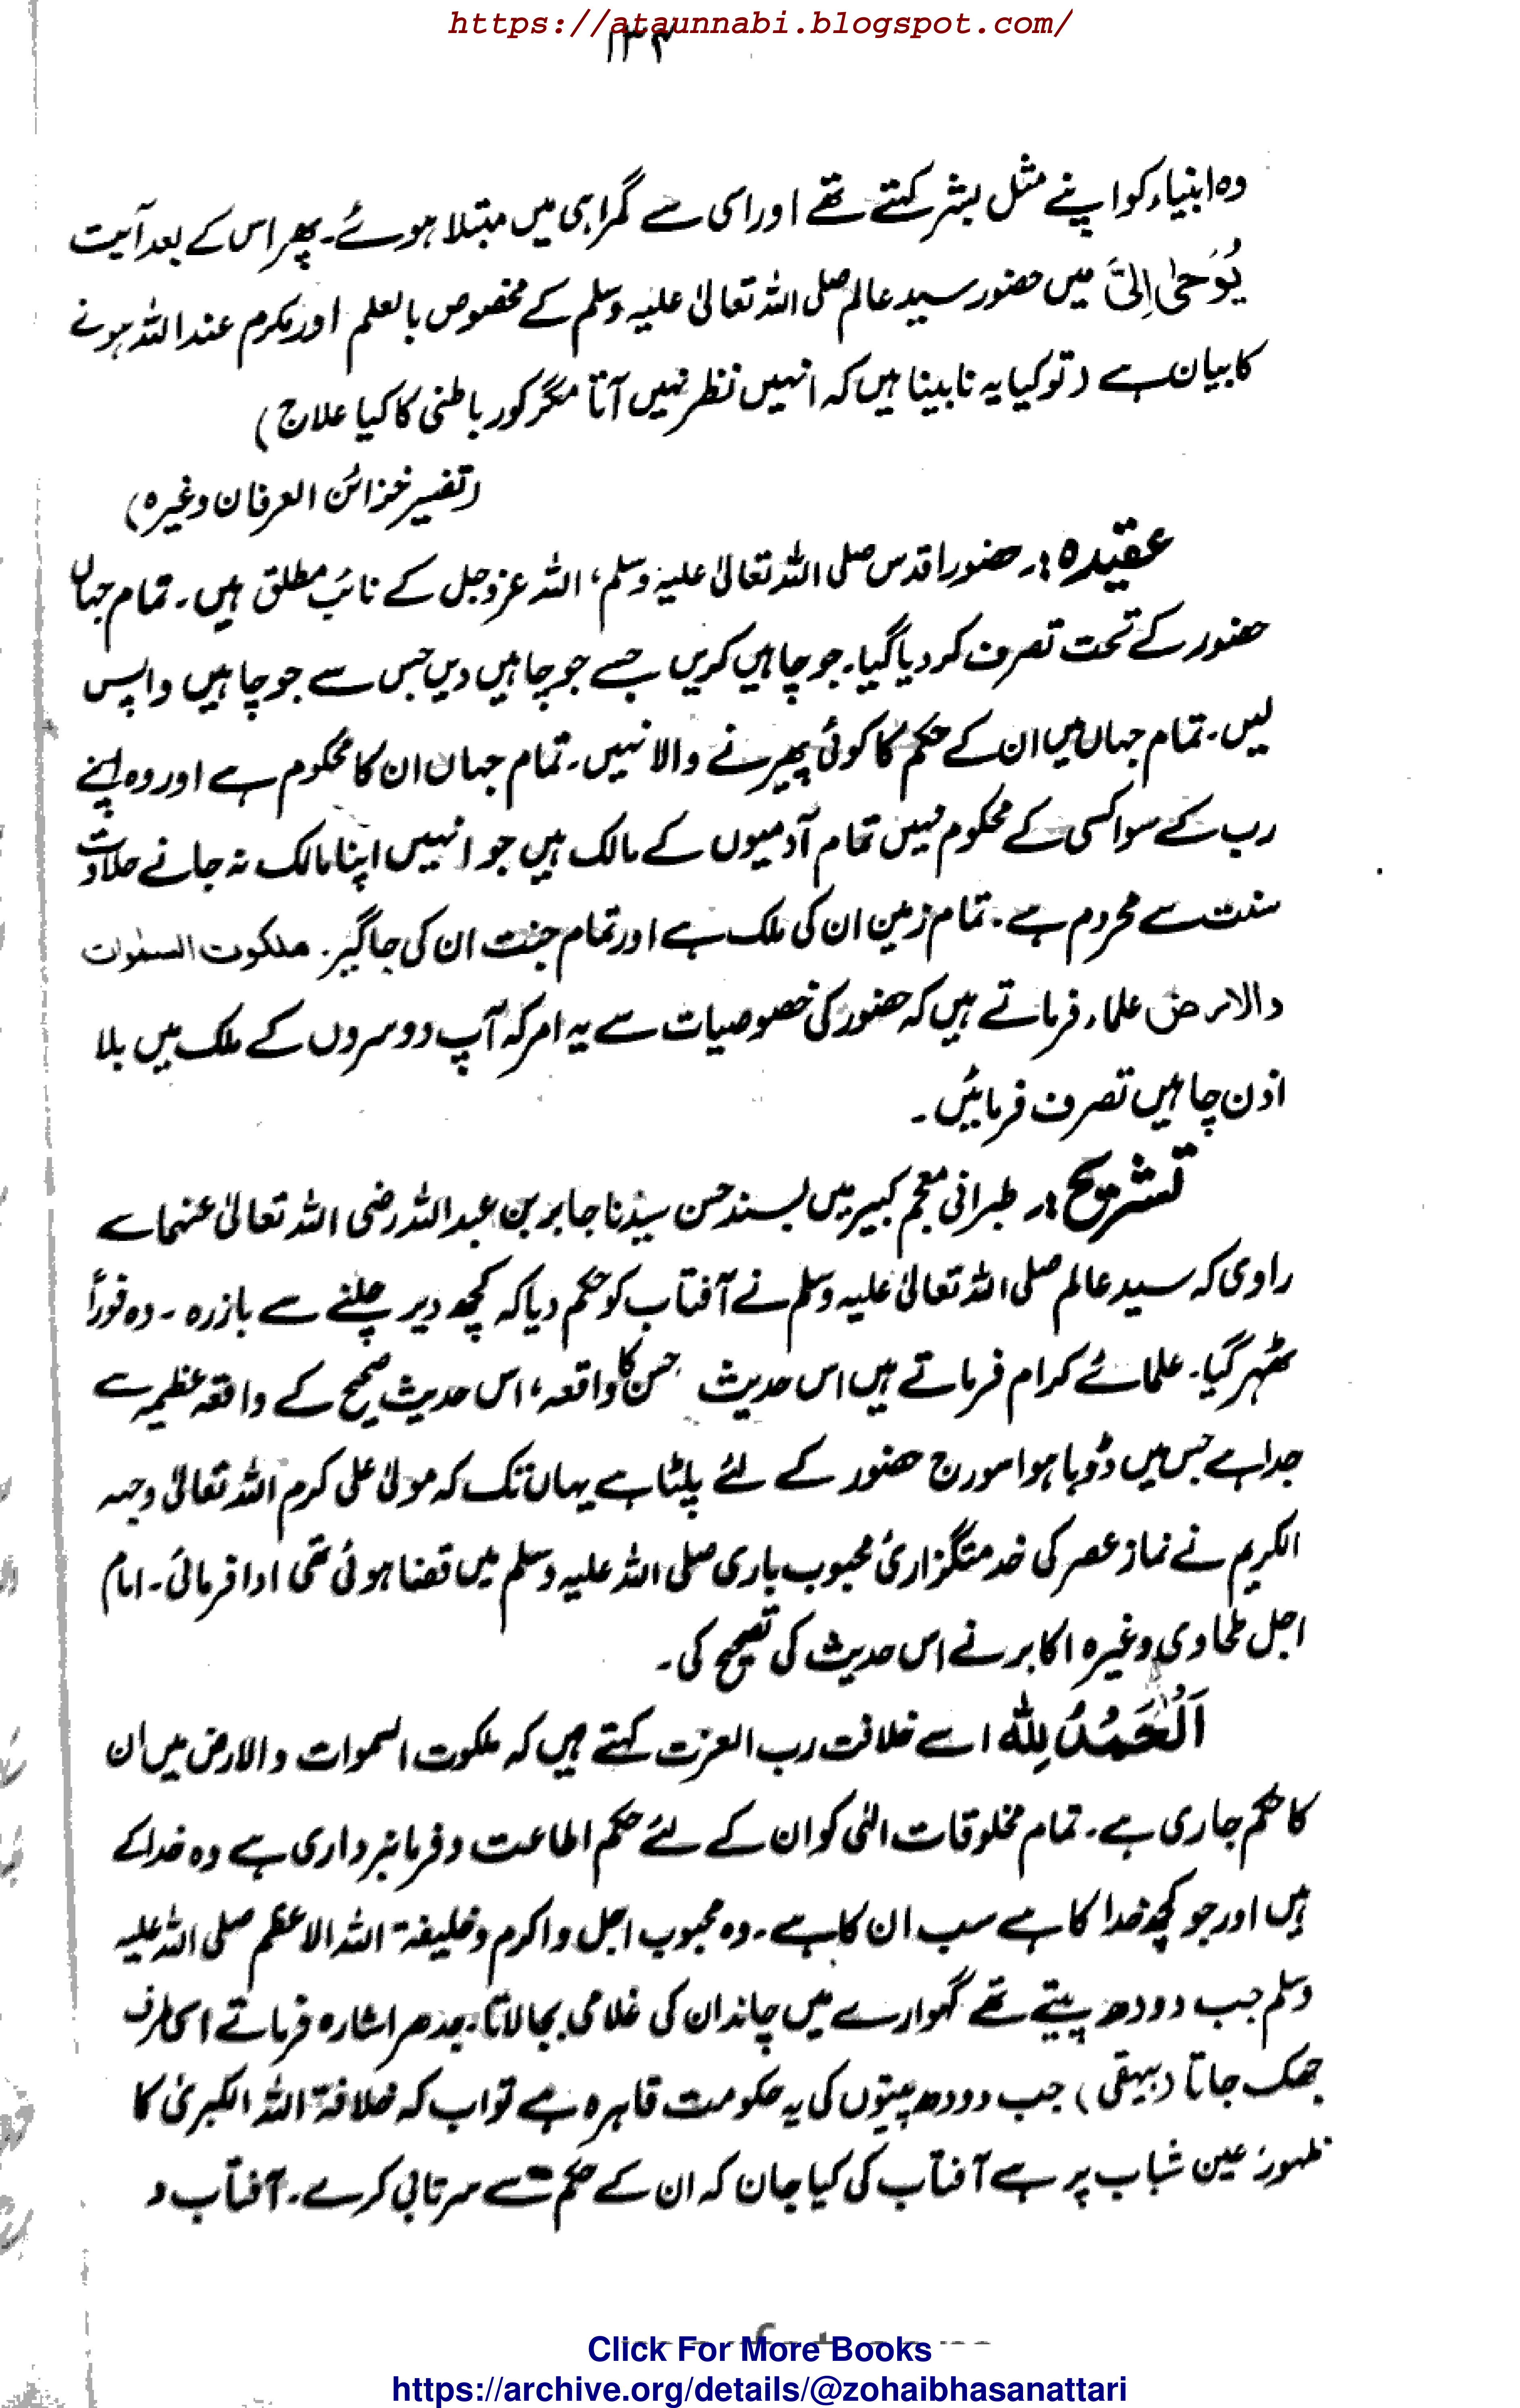 https://ataunnabi.blogspot.com/
۱۳۴
وہ انبیاء کو اپنے مثل بشر کہتے تھے اور اسی سے گمراہی میں مبتلا ہوئے۔ پھر اس کے بعد آیت
یُوْحٰی اِلَیَّ میں حضور سید عالم صلی اللہ تعالیٰ علیہ وسلم کے مخصوص بالعلم اور مکرم عند اللہ ہونے
کا بیان ہے (تو کیا یہ نابینا ہیں کہ انہیں نظر نہیں آتا مگر کور باطنی کا کیا علاج)
(تفسیر خزائن العرفان وغیرہ)
عقیدہ :۔ حضور اقدس صلی اللہ تعالیٰ علیہ وسلم، اللہ عزوجل کے نائب مطلق ہیں۔ تمام جہاں
حضور کے تحت تصرف کر دیا گیا۔ جو چاہیں کریں جسے جو چاہیں دیں جس سے جو چاہیں واپس
لیں۔ تمام جہاں میں ان کے حکم کا کوئی پھیرنے والا نہیں۔ تمام جہاں ان کا محکوم ہے اور وہ اپنے
رب کے سوا کسی کے محکوم نہیں تمام آدمیوں کے مالک ہیں جو انہیں اپنا مالک نہ جانے حلاوت
سنت سے محروم ہے۔ تمام زمین ان کی ملک ہے اور تمام جنت ان کی جاگیر۔ ملکوت السمٰوات
والارض علماء فرماتے ہیں کہ حضور کی خصوصیات سے یہ امر کہ آپ دوسروں کے ملک میں بلا
اذن چاہیں تصرف فرمائیں۔
تشریح :۔ طبرانی معجم کبیر میں بسند حسن سیدنا جابر بن عبد اللہ رضی اللہ تعالیٰ عنہما سے
راوی کہ سید عالم صلی اللہ تعالیٰ علیہ وسلم نے آفتاب کو حکم دیا کہ کچھ دیر چلنے سے باز رہ۔ وہ فوراً
ٹھہر گیا۔ علمائے کرام فرماتے ہیں اس حدیث حسن کا واقعہ، اس حدیث صحیح کے واقعہ عظیمہ سے
جدا ہے جس میں ڈوبا ہوا سورج حضور کے لئے پلٹا ہے یہاں تک کہ مولیٰ علی کرم اللہ تعالیٰ وجہہ
الکریم نے نماز عصر کی خدمتگزاریٔ محبوب باری صلی اللہ علیہ وسلم میں قضا ہوئی تھی ادا فرمائی۔ امام
اجل طحاوی وغیرہ اکابر نے اس حدیث کی تصحیح کی۔
اَلْحَمْدُ لِلّٰہ اسے خلافت رب العزت کہتے ہیں کہ ملکوت السموات والارض میں ان
کا حکم جاری ہے۔ تمام مخلوقات الٰہی کو ان کے لئے حکم اطاعت و فرمانبرداری ہے وہ خدا کے
ہیں اور جو کچھ خدا کا ہے سب ان کا ہے۔ وہ محبوب اجل و اکرم و خلیفۃ اللہ الاعظم صلی اللہ علیہ
وسلم جب دودھ پیتے تھے گہوارے میں چاند ان کی غلامی بجا لاتا۔ جدھر اشارہ فرماتے اسی طرف
جھک جاتا (بیہقی) جب دودھ پیتوں کی یہ حکومت قاہرہ ہے تو اب کہ خلافۃ اللہ الکبریٰ کا
ظہور عین شباب پر ہے آفتاب کی کیا جان کہ ان کے حکم سے سرتابی کرے۔ آفتاب و
Click For More Books
https://archive.org/details/@zohaibhasanattari